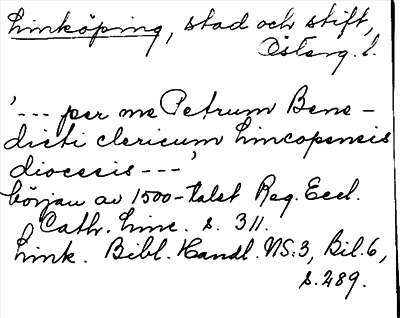 Linköping, stad och stift,
Österg. l.
'--- per me Petrum Bene-
dicti clericum Lincopensis
diocesis ---'
början av 1500-talet Reg. Eccl.
Cath. Linc. s. 311.
Link. Bibl. Handl. NS:3, Bil. 6,
s. 289.